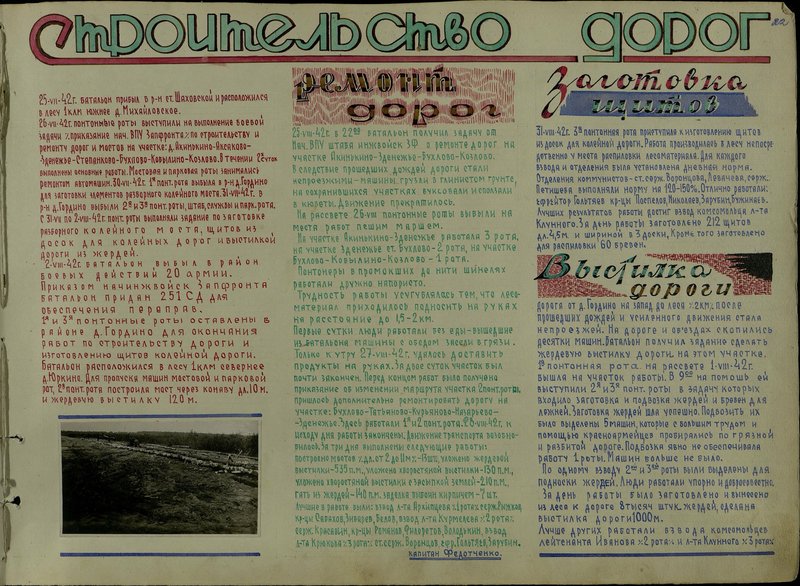 Строительство дорог
25-VII-42г. батальон прибыл в р-н ст. Шаховской и расположился
в лесу 1 клм южнее д. Михайловское.
26-VII-42г. понтонные роты выступили на выполнение боевой
задачи
ремонту дорог и мостов на участке: д. Якимкино-Аксаково-
Зденежье-Степанково-Бухлово-Ковылино-Козлово. В течении 72 суток
выполнены основные работы. Мостовая и парковая роты занимались
ремонтом автомашин. 30-VII-42г. 1ая понт. рота выехала в р-н д. Гордино
для заготовки элементов разборного колейного моста. 31-VII-42г. в
р-н д. Гордино выбыли 2ая и 3я понт. роты, штаб, службы и парк. рота.
С 31-VII по 2-VIII-42г. понт. роты выполняли задание по заготовке
разборного колейного моста, щитов из
досок для колейных дорог и выстилкой
дороги из жердей.
2-VIII-42г. батальон выбыл в район
боевых действий 20 армии.
Приказом начинжвойск Запфронта
батальон придан 251 СД для
обеспечения переправ.
1я и 3я понтонные роты оставлены в
районе д. Гордино для окончания
работ по строительству дороги и
изготовлению щитов колейной дороги.
Батальон расположился в лесу 1 клм севернее
д. Юркино. Для пропуска машин мостовой и парковой
рот, 2я понт. рота построила мост через канаву дл. 10 м.
и жердевую выстилку 120 м.
ремонт
дорог
25-VII-42г. в 22 00 батальон получил задачу от
Нач. ВПУ штаба инжвойск ЗФ о ремонте дорог на
участке Якинькино-Зденежье-Бухлово-Козлово.
В следствие прошедших дождей дороги стали
непроезжими-машины, грузли в глинистом грунте,
на сохранившихся участках буксовали и сползали
в кюветы. Движение прекратилось.
На рассвете 26-VIII понтонные роты вывыли на
места работ пешим маршем.
На участке Якинькино-Зденежье работала 3 рота,
на участке Зденежье ст. Бухлово-2 рота, на участке
Бухлово-Ковылино-Козлово-1 рота.
Понтонеры в промокших до нити шинелях
работали дружно напористо.
Трудность работы усугублялась тем, что лесо-
материал приходилось подносить на руках
на расстояние до 1,5-2км.
Первые сутки люди работали без еды-вышедшие
из батальона машины с обедом засели в грязи.
Только к утру 27-VIII-42г. удалось доставить
продукты на руках. За двое суток участок был
почти закончен. Перед концом работ была получена
приказание об изменении маршрута участка
пришлось дополнительно ремонтировать дорогу на
участке: Бухлово-Татьяново-Курьяново-Назарьево-
-Зденежье. Здесь работали 1я и 2 понт. рота. 28-VIII-42г. к
исходу дня работы закончены. Движение транспорта возобно-
вилось. За три дня выполнены следующие работы:
построено мостов дл. от 2 до 11 м.-13 шт, уложено жердевой
выстилки-535 п.м., уложено хворостяной выстилки-130 п.м.,
уложено хворостяной выстилки с засыпкой землей-210 п.м.,
гать из жердей-140 п.м. заделка выбоин кирпичем-7 шт.
Лучшие в работе были: взвод л-та Архипцева 1 рота: серж. Рыжков,
кр-цы Савахов, Зибарев, Белов, взвод л-та Курмелева 2 рота:
серж. Краскин, кр-цы Романов, Филаретов, Володькин, взвод
л-та Крюкова 3 рота: ст. серж. Воронцов, ефр. Гольтяев, Зарубин.
капитан Федотченко.
Заготовка
щитов
31-VII-42г. 3я понтонная рота приступила к изготовлению щитов
из досок для колейной дороги. Работа производилась в лесу непос-
редственно у места распиловки лесоматериала. Для каждого
взвода и отделения была установлена дневная норма.
Отделения коммунистов-ст. серж. Воронцова, Левачева, серж.
Петищева выполняли норму на 120-150%. Отлично работали:
ефрейтор Гольтяев кр-цы Поспелов, Николаев, Зарубин, Бужинаев.
Лучших результатов работы достиг взвод комсомольца л-та
Клунного. За день работы заготовлено 212 щитов
дл. 4,5м. и шириной в 3 доски. Кроме того заготовлено
для распиловки 60 бревен.
Выстилка
дороги
Дорога от д. Гордино на запад до леса 2км. после
прошедших дождей и усиленного движения стала
непроезжой. На дороге и об'ездах скопились
десятки машин. Батальон получил задание сделать
жердевую выстилку дороги на этом участке.
1я понтонная рота на рассвете 1-VIII-42г.
вышла на участок работы. В 9 00 на помощь ей
выступили 2я и 3я понт. роты в задачу которых
входило заготовка и подвозка жердей и бревен для
ложней. Заготовка жердей шла успешно. Подвозить их
было выделены 6 машин, которые с большим трудом и
помощью красноармейцев пробирались по грязной
и разбитой дороге. Подвозка явно не обеспечивала
работу 1 роты. Машин больше не было.
По одному взводу 2ой и 3ей роты были выделены для
подноски жердей. Люди работали упорно и добросовестно.
За день работы было заготовлено и вынесено
из леса и дороге 8 тысяч штук жердей, сделана
выстилка дороги 1000м.
Лучше других работали взвода комсомольцев
лейтенанта Иванова 2 рота и л-та Клунного 3 рота